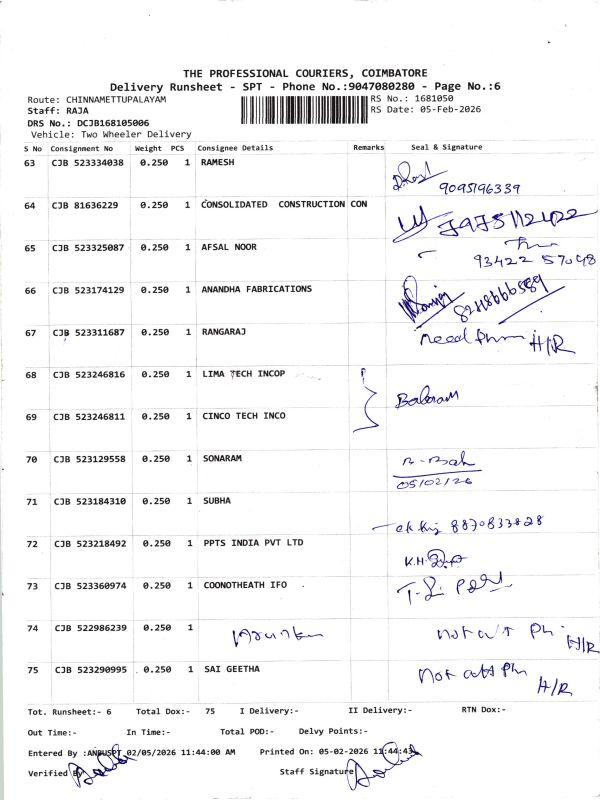 THE PROFESSIONAL COURIERS, COIMBATORE
Delivery Runsheet - SPT - Phone No.:9047080280 - Page No.:6
Route: CHINNAMETTUPALAYAM RS No.: 1681050
Staff: RAJA RS Date: 05-Feb-2026
DRS No.: DCJB168105006
Vehicle: Two Wheeler Delivery
S No Consignment No Weight PCS Consignee Details Remarks Seal & Signature
63 CJB 523334038 0.250 1 RAMESH
9095196339
64 CJB 81636229 0.250 1 CONSOLIDATED CONSTRUCTION CON
7975112422
65 CJB 523325087 0.250 1 AFSAL NOOR
93422 57048
66 CJB 523174129 0.250 1 ANANDHA FABRICATIONS
67 CJB 523311687 0.250 1 RANGARAJ
need phn H/R
68 CJB 523246816 0.250 1 LIMA TECH INCOP
Balaram
69 CJB 523246811 0.250 1 CINCO TECH INCO
70 CJB 523129558 0.250 1 SONARAM
05/02/26
71 CJB 523184310 0.250 1 SUBHA
8870833828
72 CJB 523218492 0.250 1 PPTS INDIA PVT LTD
K.H.
73 CJB 523360974 0.250 1 COONOTHEATH IFO
74 CJB 522986239 0.250 1
Not att Ph. H/R
75 CJB 523290995 0.250 1 SAI GEETHA
Not att Phn H/R
Tot. Runsheet:- 6 Total Dox:- 75 I Delivery:- II Delivery:- RTN Dox:-
Out Time:- In Time:- Total POD:- Delvy Points:-
Entered By :ANBUSPT 02/05/2026 11:44:00 AM Printed On: 05-02-2026 11:44:43
Verified By Staff Signature